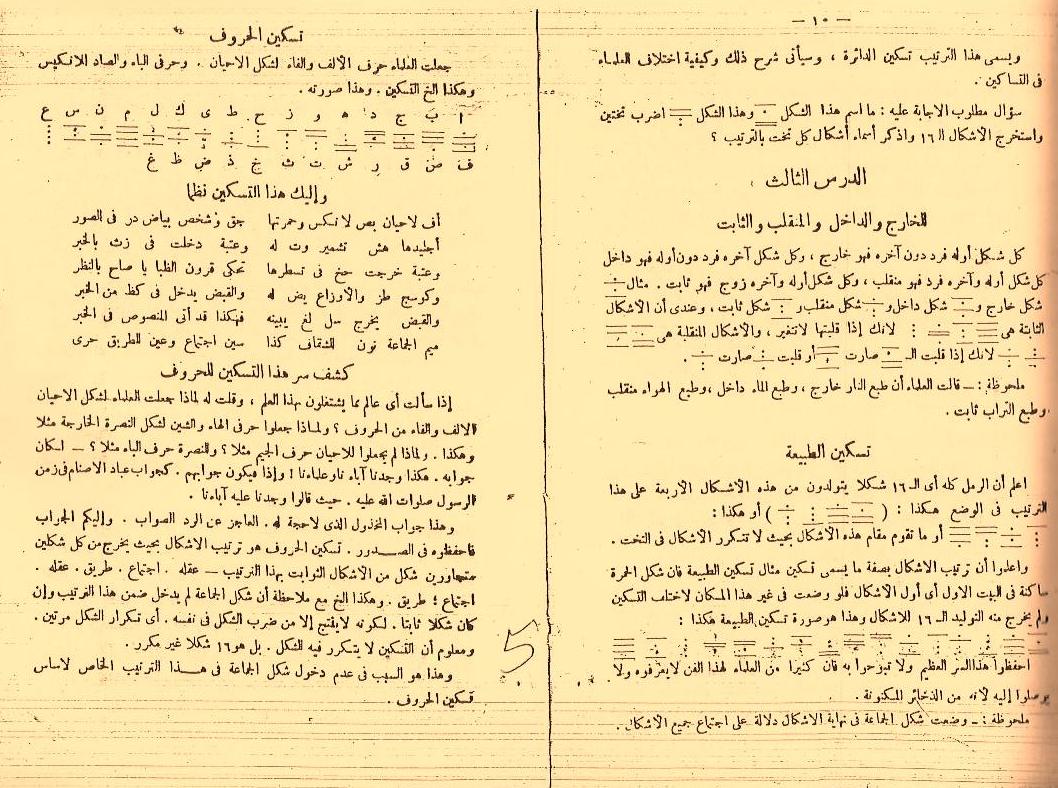 — ١٠ —
ويسمى هذا الترتيب تسكين الدائرة ، وسيأتى شرح ذلك وكيفية اختلاف العلماء
فى التساكين .
سؤال مطلوب الاجابة عليه : ما اسم هذا الشكل وهذا الشكل اضرب تختين
واستخرج الاشكال الـ ١٦ واذكر أسماء أشكال كل تخت بالترتيب ؟
الدرس الثالث
للخارج والداخل والمنقلب والثابت
كل شكل أوله فرد دون آخره فهو خارج ، وكل شكل آخره فرد دون أوله فهو داخل
كل شكل أوله وآخره فرد فهو منقلب ، وكل شكل أوله وآخره زوج فهو ثابت . مثال
شكل خارج و شكل داخل و شكل منقلب و شكل ثابت ، وعندى أن الاشكال
الثابتة هى لانك إذا قلبتها لاتتغير ، والاشكال المنقلبة هى
لانك إذا قلبت الـ صارت أو قلبت صارت .
ملحوظة : ــ قالت العلماء أن طبع النار خارج ، وطبع الماء داخل ، وطبع الهواء منقلب
وطبع التراب ثابت .
تسكين الطبيعة
اعلم أن الرمل كله أى الـ ١٦ شكلا يتولدون من هذه الاشكال الاربعة على هذا
الترتيب فى الوضع هكذا : ( ) أو هكذا :
أو ما تقوم مقام هذه الاشكال بحيث لا تتكرر الاشكال فى التخت .
واعلموا أن ترتيب الاشكال بصفة ما يسمى تسكين مثال تسكين الطبيعة فان شكل الحمرة
ساكنة فى البيت الاول أى أول الاشكال فلو وضعت فى غير هذا المكان لاختلف التسكين
ولم يخرج منه التوليد الـ ١٦ للاشكال وهذا هو صورة تسكين الطبيعة هكذا :
احفظوا هذا السر العظيم ولا تبوحوا به فان كثيرا من العلماء لهذا الفن لايعرفوه ولا
يوصلوا إليه لانه من الذخائر المكنونة .
ملحوظة : ــ وضعت شكل الجماعة فى نهاية الاشكال دلالة على اجتماع جميع الاشكال .
تسكين الحروف
جعلت العلماء حرف الألف والفاء لشكل الاحيان . وحرفى الباء والصاد للانكيس
وهكذا الخ التسكين . وهذا صورته .
ا ب ج د ه و ز ح ط ى ك ل م ن س ع
ف ص ق ر ش ت ث خ ذ ض ظ غ
وإليك هذا التسكين نظما
أف لاحيان بص لانكس وحمرتها جق وشخص بياض در فى الصور
هش تشمير وت له وعتبة دخلت فى زث بالخبر
وعتبة خرجت حخ فى تسطرها تحكى قرون الظبا يا صاح بالنظر
وكوسج طذ والاوزاع يض له والقبض يدخل فى كظ من الخبر
والقبض يخرج سل لغ يبينه فهكذا قد أتى المنصوص فى الخبر
ميم الجماعة نون للشقاف كذا سين اجتماع وعين للطريق حرى
كشف سر هذا التسكين للحروف
إذا سألت أى عالم مما يشتغلون بهذا العلم ، وقلت له لماذا جعلت العلماء لشكل الاحيان
الالف والفاء من الحروف ؟ ولماذا جعلوا حرفى الهاء والشين لشكل النصرة الخارجة مثلا
وهكذا . ولماذا لم يجعلوا للاحيان حرف الجيم مثلا ؟ والنصرة حرف الباء مثلا ؟ ــ لكان
جوابه . هكذا وجدنا آباءنا وعلماءنا ! وإذا فيكون جوابهم . كجواب عباد الاصنام فى زمن
الرسول صلوات الله عليه . حيث قالوا وجدنا عليه آباءنا .
وهذا جواب المخذول الذى لاحجة له . العاجز عن الرد الصواب . وإليكم الجواب
فاحفظوه فى الصــدور . تسكين الحروف هو ترتيب الاشكال بحيث يخرج من كل شكلين
متجاورين شكل من الاشكال الثوابت بهذا الترتيب ــ عقله . اجتماع . طريق . عقله .
اجتماع ؛ طريق . وهكذا الخ مع ملاحظة أن شكل الجماعة لم يدخل ضمن هذا الترتيب وإن
كان شكلا ثابتا . لكونه لاينتج إلا من ضرب الشكل فى نفسه . أى تكرار الشكل مرتين .
ومعلوم أن التسكين لا يتكرر فيه الشكل . بل هو ١٦ شكلا غير مكرر .
وهذا هو السبب فى عدم دخول شكل الجماعة فى هــذا الترتيب الخاص لاساس
تسكين الحروف .
5